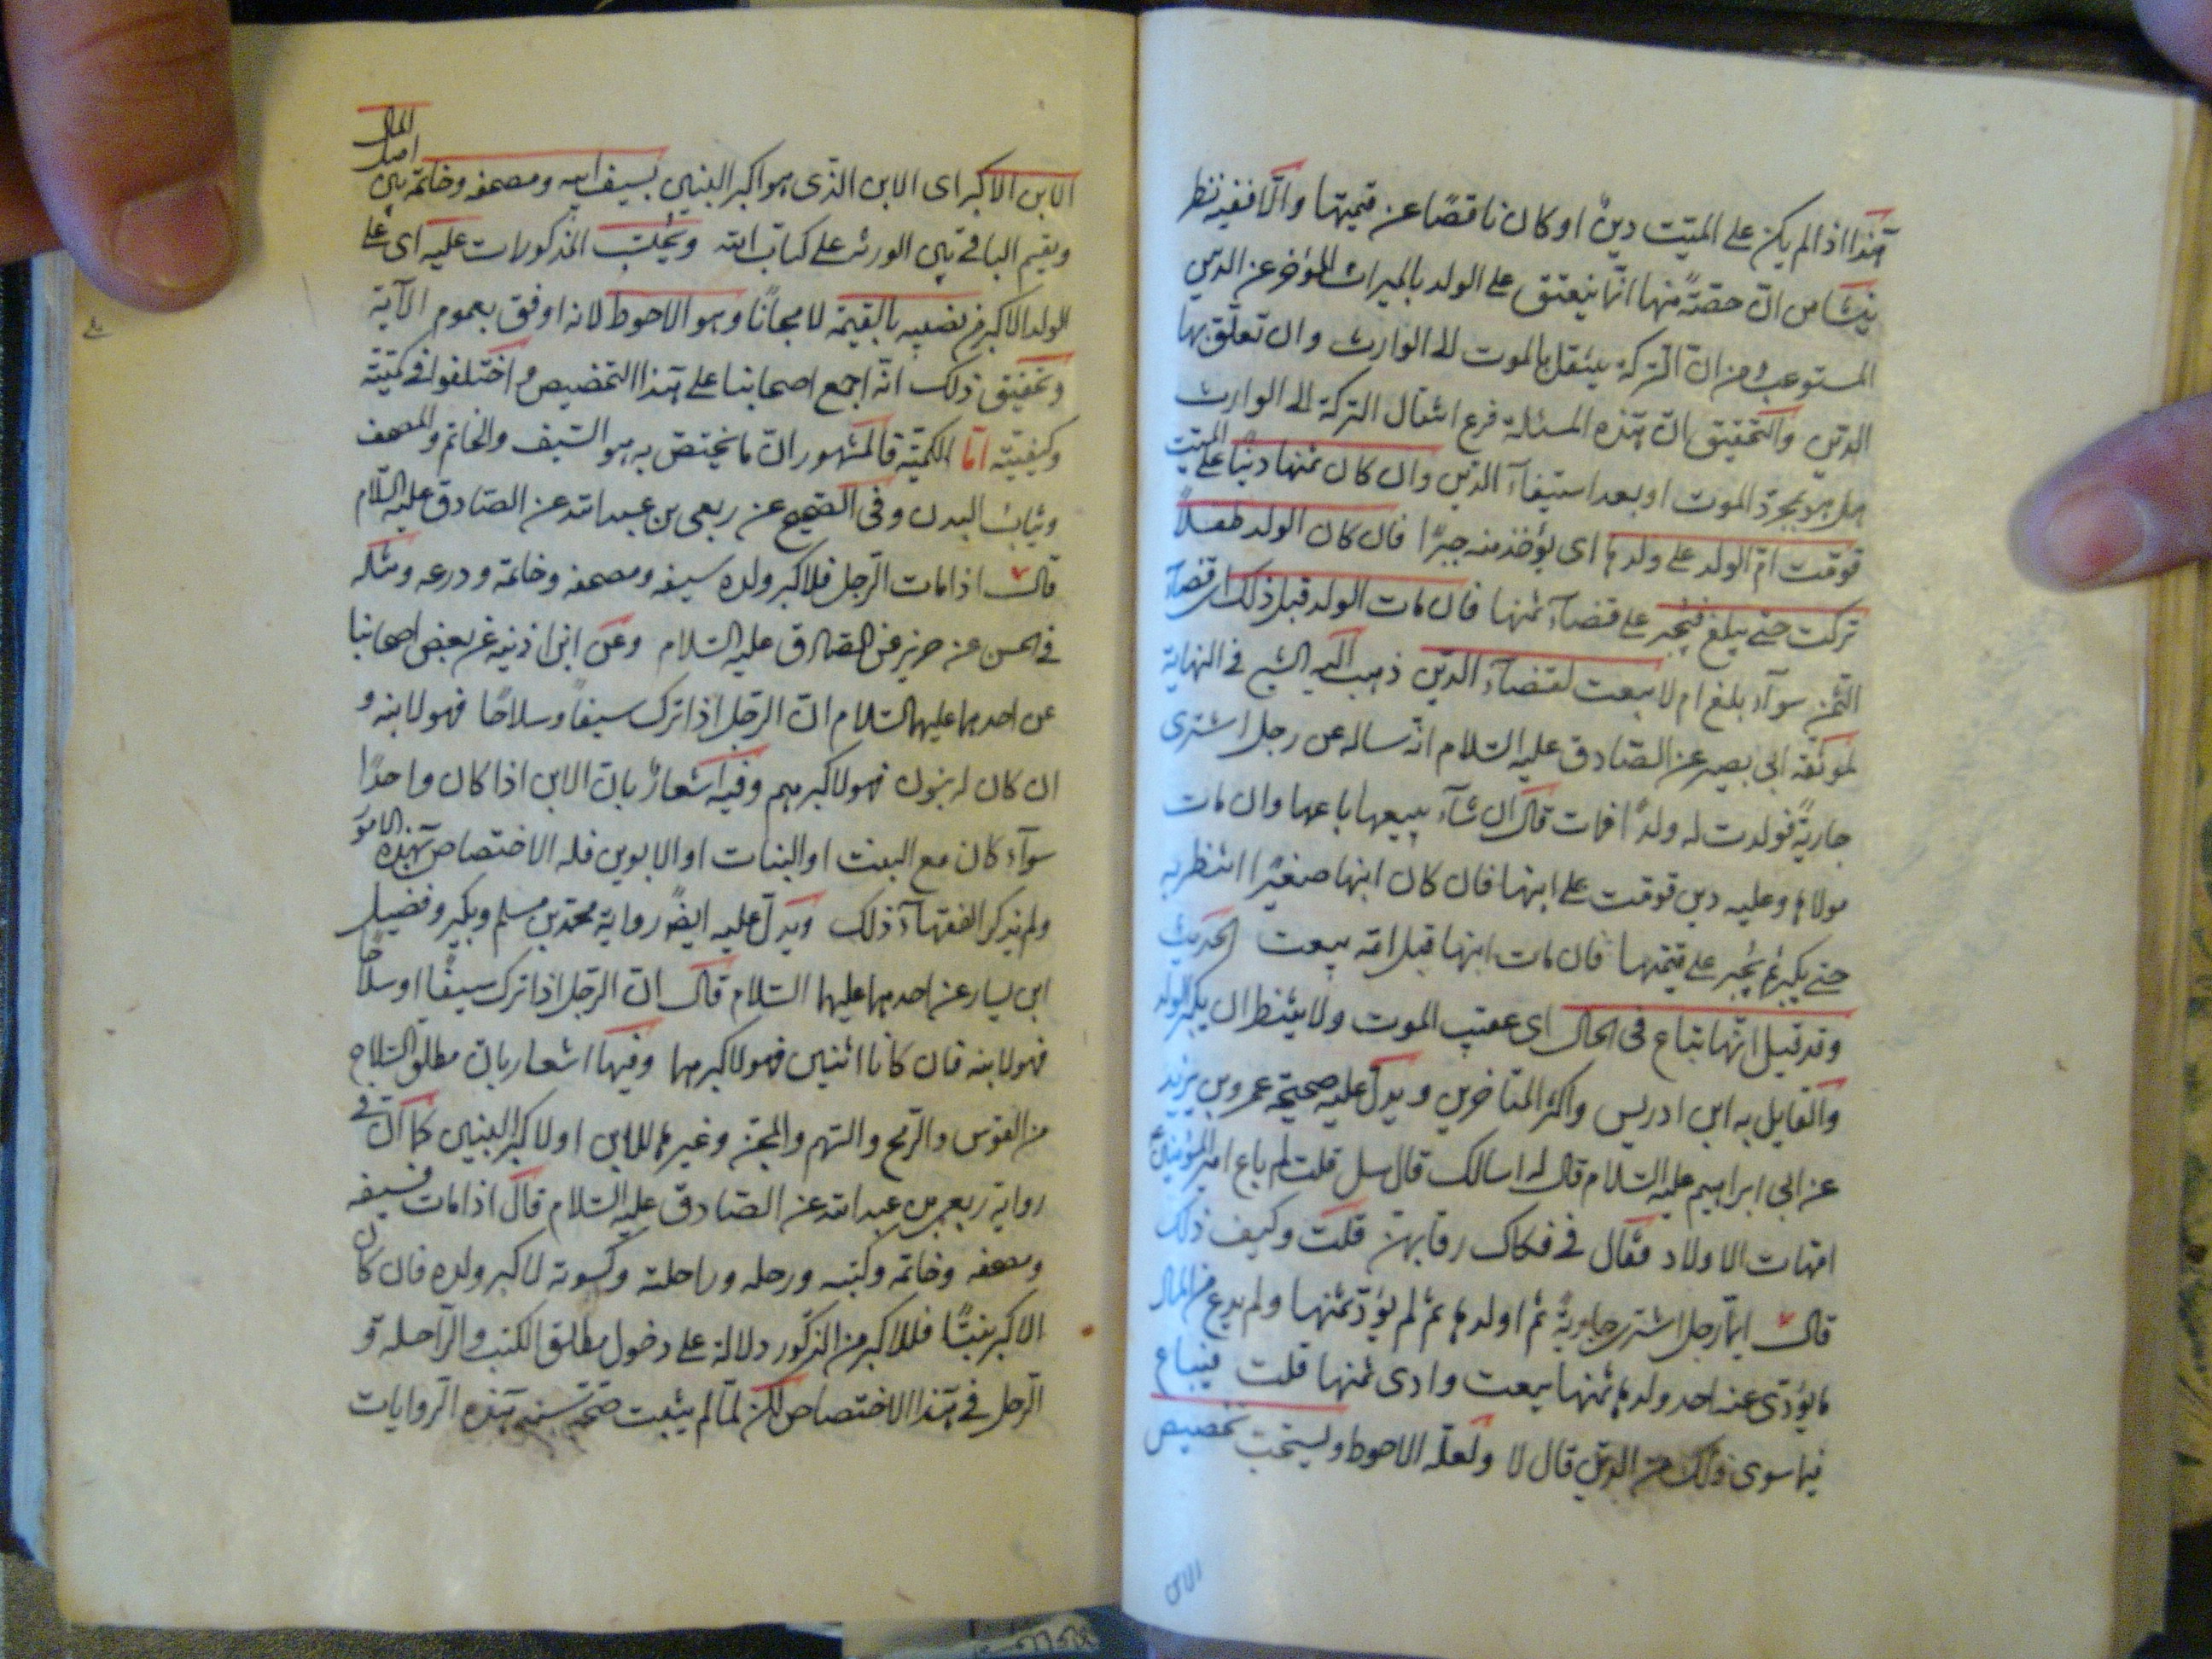 هذا اذا لم يكن على الميت دينٌ او كان ناقصًا عن قيمتها والّا ففيه نظر
ينشأ من انّ حصّةً منها انّما ينعتق على الولد بالميراث المؤخر عن الدين
المستوعب ومن انّ التركة ينتقل بالموت الى الوارث وان تعلّق بها
الدين والتحقيق انّ هذه المسئلة فرع انتقال التركة الى الوارث
هل هو بمجرد الموت او بعد استيفآء الدين وان كان ثمنها دينًا على الميت
قوّمت امّ الولد على ولدها اى يؤخذ منه جبرًا فان كان الولد طفلاً
تركت حتى يبلغ فيجبر على قضآء ثمنها فان مات الولد قبل ذلك اى قضآء
الثمن سوآء بلغ ام لا بيعت لقضآء الدين ذهب اليه الشيخ فى النهاية
لموثقة ابى بصير عن الصادق عليه السلام انّه ساله عن رجل اشترى
جاريةً فولدت له ولدًا فمات قال ان شآء يبيعها باعها وان مات
مولاها وعليه دين قوّمت على ابنها فان كان ابنها صغيرًا انتظر به
حتى يكبر ثم يُجبر على قيمتها فان مات ابنها قبل امّه بيعت الحديث
وقد قيل انّها تباع فى الحال اى عقيب الموت ولا ينتظر ان يكبر الولد
والقايل به ابن ادريس واكثر المتاخرين ويدلّ عليه صحيحة عمر بن يزيد
عن ابى ابراهيم عليه السلام قال له اسالك قال سل قلت لم باع امير المؤمنين ع
امّهات الاولاد فقال فى فكاك رقابهنّ قلت وكيف ذلك
قال ايّما رجل اشترى جاريةً ثم اولدها ثم لم يؤدّ ثمنها ولم يدع من المال
ما يؤدّى عنه اخذ ولدها ثمنها بيعت وادى ثمنها قلت فيباع
فيما سوى ذلك من الدين قال لا ولعلّه الاحوط ويستحبّ تخصيص
الابن
اصل المال
الابن الاكبر اى الابن الذى هو اكبر البنين بسيف ابيه ومصحفه وخاتمه
ويقيم الباقى بين الورثه على كتاب الله ويحتسب المذكورات عليه اى على
الولد الاكبر من نصيبه بالقيمة لا مجانًا وهو الاحوط لانه اوفق بعموم الآية
وتحقيق ذلك انّه اجمع اصحابنا على هذا التخصيص واختلفوا فى كميّته
وكيفيّته امّا الكميّة فالمشهور انّ ما يختصّ به هو السّيف والخاتم والمصحف
وثياب البدن وفى الصّحيح عن ربعى بن عبد الله عن الصادق عليه السّلام
قال اذا مات الرّجل فلاكبر ولده سيفه ومصحفه وخاتمه ودرعه ومثله
فى الحسن عن حريز عن الصادق عليه السّلام وعن ابن اذنيه عن بعض اصحابنا
عن احدهما عليهما السّلام انّ الرجل اذا ترك سيفًا وسلاحًا فهو لابنه و
ان كان له بنون فهو لاكبرهم وفيه اشعارٌ بان الابن اذا كان واحدًا
سوآء كان مع البنت او البنات او الابوين فله الاختصاص بهذه الامور
ولم يذكر الفقهآء ذلك ويدلّ عليه ايضًا رواية محمد بن مسلم وبكير وفضيل
ابن يسار عن احدهما عليهما السّلام قال انّ الرّجل اذا ترك سيفًا او سلاحًا
فهو لابنه فان كانا اثنين فهو لاكبرهما وفيها اشعار بان مطلق السلاح
من القوس والرّمح والسّهم والمجنّ وغيرها للابن او لاكبر البنين كما انّ فى
رواية ربعى بن عبد الله عن الصّادق عليه السّلام قال اذا مات فسيفه
ومصحفه وخاتمه وكتبه ورحله وراحلته وكسوته لاكبر ولده فان كان
الاكبر بنتًا فللاكبر من الذّكور دلالة على دخول مطلق الكتب والرّاحلة و
الرّحل فى هذا الاختصاص لكن لمّا لم يثبت صحّة هذه الرّوايات